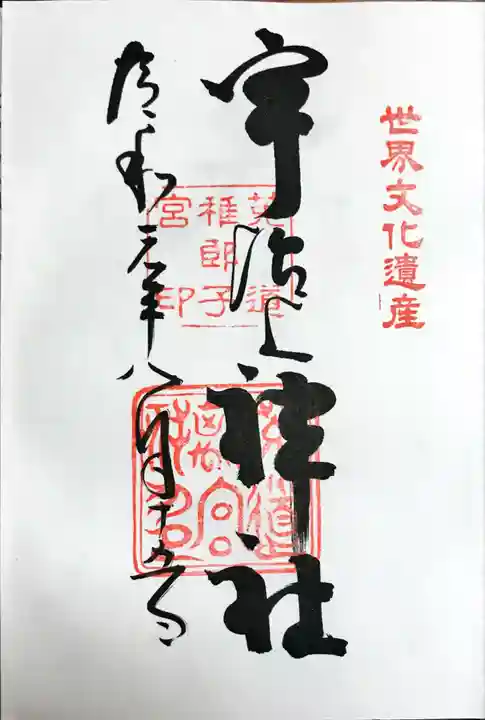 世界文化遺産
宇治上神社
菟道
稚郎子
宮印
令和元年八月十五日